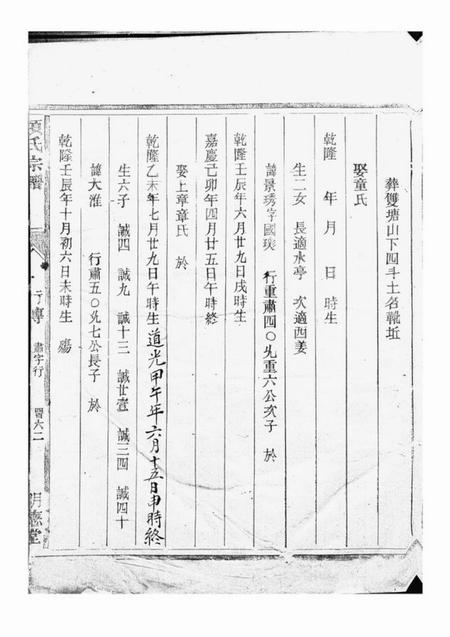 葬雙塘山下四斗土名靴坵
娶童氏
乾隆 年 月 日 時生
生二女 長適永亭 次適西姜
諱景琇字國瑛 行重肅四〇先重六公次子 於
乾隆壬辰年六月廿九日戌時生
嘉慶己卯年四月廿五日午時終
娶上章章氏 於
乾隆乙未年七月廿九日午時生道光甲午年六月十五日申時終
生六子 誠四 誠九 誠十三 誠廿壹 誠三四 誠四十
諱大淮 行肅五〇先七公長子 於
乾隆壬辰年十月初六日未時生 殤
項氏宗譜
行傳 肅字行